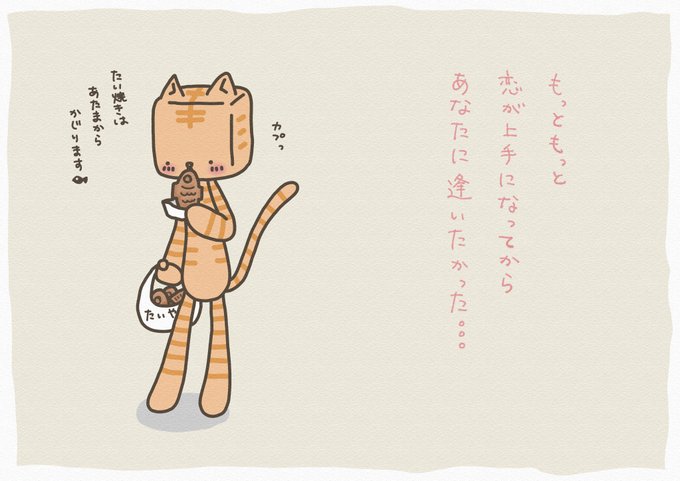 もっともっと
恋が上手になってから
あなたに逢いたかった...
カプっ
たい焼きは
あたまから
かじります
たいや